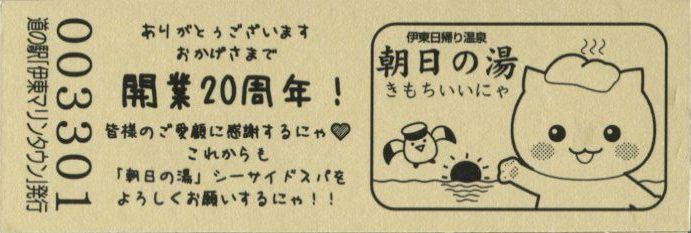 003301
道の駅「伊東マリンタウン」発行
ありがとぅございます
おかげさまで
開業20周年！
皆様のご愛顧に感謝するにゃ♥
これからも
「朝日の湯」シーサイドスパを
よろしくお願いするにゃ！！
伊東日帰り温泉
朝日の湯
きもちいいにゃ